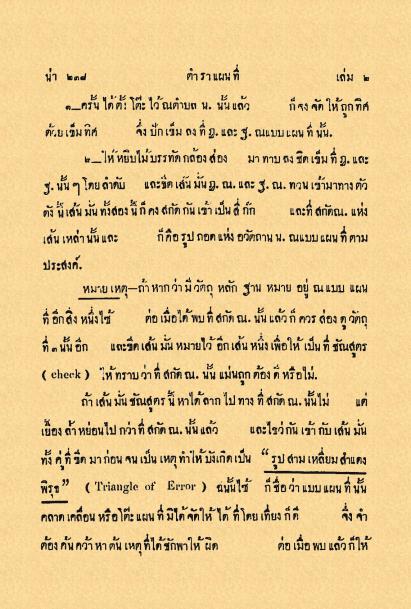 น่า ๒๓๘ ตำราแผนที่ เล่ม ๒
๑—ครั้น ได้ตั้ง โต๊ะ ไว้ ณตำบล น. นั้น แล้ว ก็จงจัดให้ถูกทิศ
ด้วยเข็มทิศ จึ่ง ปักเข็ม ลงที่ ฎ. และ ฐ. ณแบบแผนที่ นั้น.
๒—ให้หยิบไม้บรรทัดกล้องส่อง มา ทาบ ลง ชิดเข็มที่ ฎ. และ
ฐ. นั้น ๆ โดย ลำดับ และขีดเส้นมั่น ฎ. ณ. และ ฐ. ณ. ทวน เข้ามาทาง ตัว
ดังนี้เส้นมั่น ทั้งสองนี้ ก็คง สกัดกัน เข้าเป็น สี่ กั๊ก และที่ สกัดณ. แห่ง
เส้นเหล่านั้นและ ก็คือรูป ถอดแห่ง อวัตถาน น. ณแบบแผนที่ ตาม
ประสงค์.
หมายเหตุ—ถ้าหากว่ามีวัตถุ หลัก ฐาน หมาย อยู่ ณแบบ แผน
ที่ อีกสิ่ง หนึ่งไซ้ ต่อเมื่อได้พบที่ สกัด ณ. นั้นแล้วก็ ควร ส่อง ดูวัตถุ
ที่ ๓ นั้น อีก และขีดเส้นมั่นหมายไว้ อีกเส้น หนึ่งเพื่อให้ เป็น ที่ ชัณสูตร
( check ) ให้ทราบว่าที่ สกัด ณ. นั้น แม่นถูกต้องดีหรือไม่.
ถ้าเส้นมั่นชัณสูตร นี้ หาได้ลาก ไป ทาง ที่ สกัด ณ. นั้นไม่ แต่
เยื้อง ล้ำหย่อนไป กว่าที่ สกัด ณ. นั้นแล้ว และไขว่กัน เข้า กับ เส้นมั่น
ทั้ง คู่ ที่ ขีด มา ก่อน จนเป็น เหตุ ทำให้ บังเกิด เป็น “ รูป สาม เหลี่ยม สำแดง
พิรุธ ” ( Triangle of Error ) ฉนั้นไซ้ ก็ชื่อว่าแบบแผนที่นั้น
คลาดเคลื่อน หรือโต๊ะแผนที่ มิได้จัดให้ได้ ที่โดยเที่ยงก็ดี จึ่ง จำ
ต้องค้นคว้าหาต้นเหตุที่ได้ชักพาให้ ผิด ต่อเมื่อ พบ แล้วก็ให้